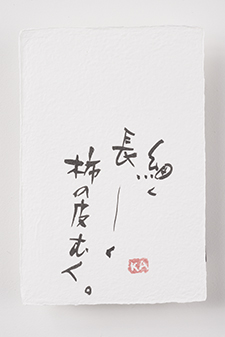 細く
長ーく
柿の皮むく。
KA